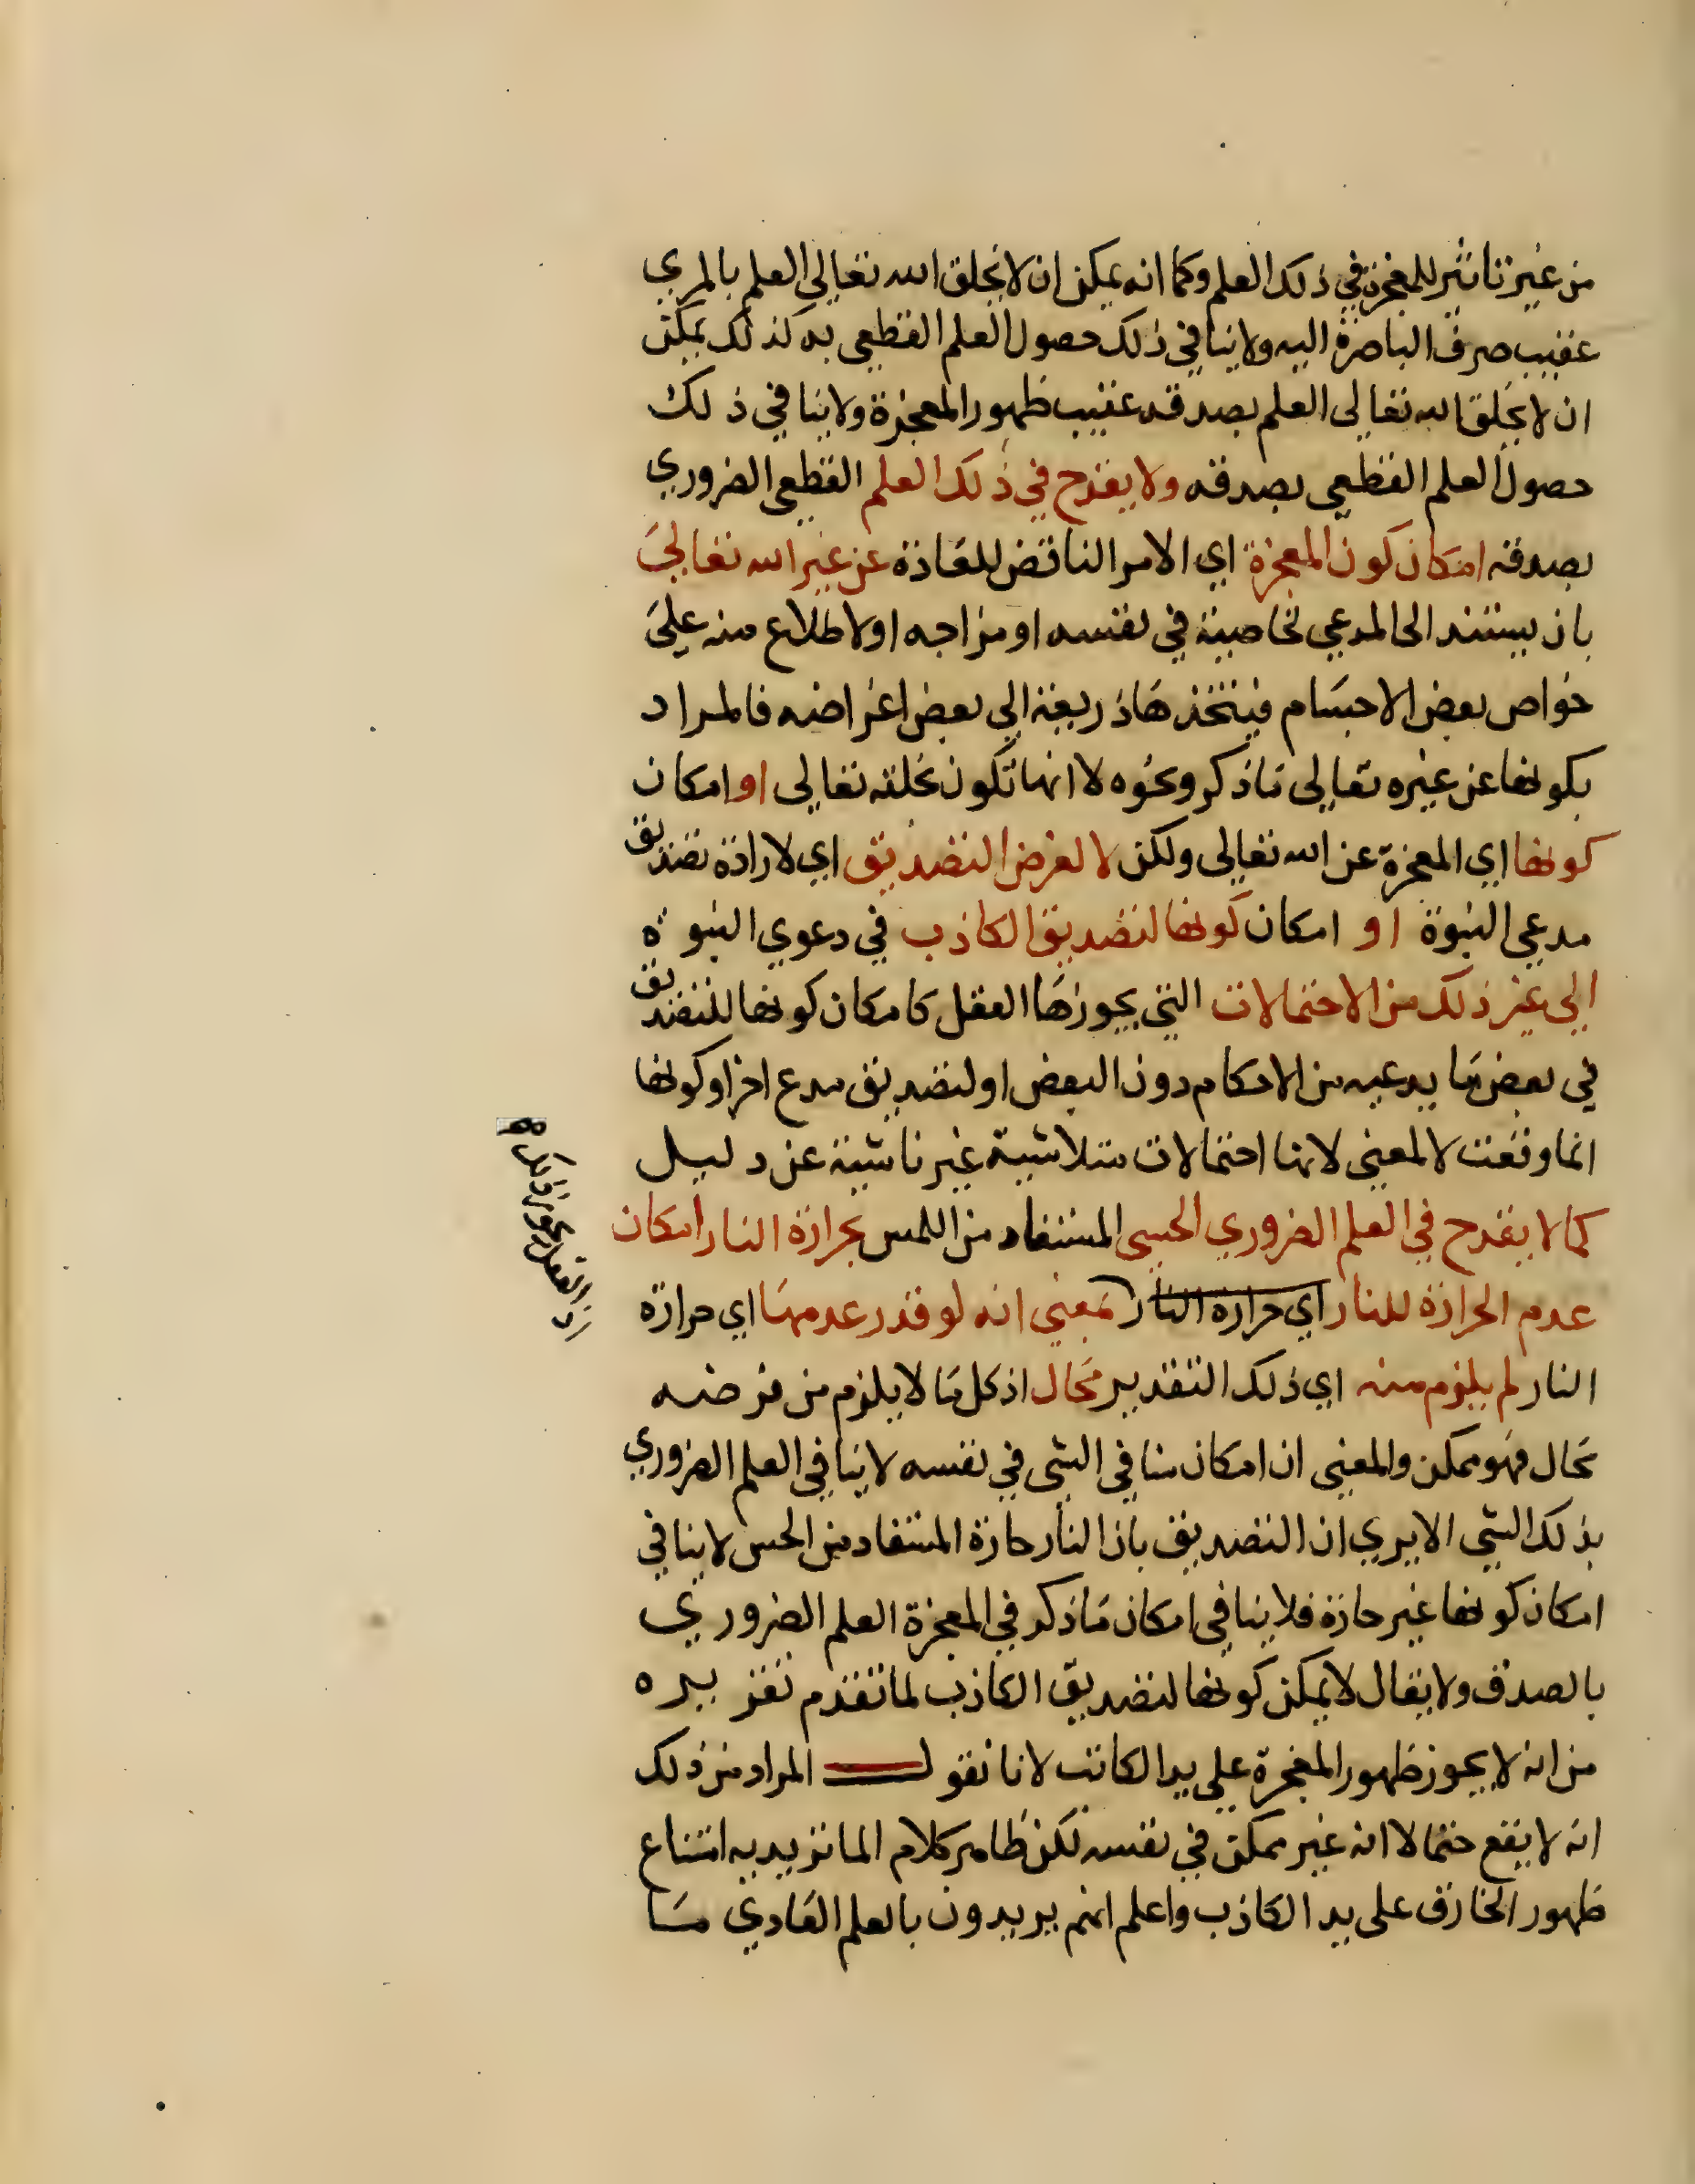 من غير تاثير للمعجزة في ذلك العلم وكما انه يمكن ان لا يخلق الله تعالى العلم بالمري
عقيب صرف الباصرة اليه ولا ينافي ذلك حصول العلم القطعي به كذلك يمكن
ان لا يخلق الله تعالى العلم بصدقه عقيب ظهور المعجزة ولا ينافي ذلك
حصول العلم القطعي بصدقه ولا يقدح في ذلك العلم القطعي الضروري
بصدقه امكان كون المعجزة اي الامر الناقض للعادة عن غير الله تعالى
بان يستند الى المدعي لخاصية في نفسه او مزاجه او لاطلاع منه على
خواص بعض الاجسام فيتخذها ذريعة الى بعض اغراضه فالمراد
بكونها عن غيره تعالى ما ذكر ونحوه لا انها تكون بخلقه تعالى او امكان
كونها اي المعجزة عن الله تعالى ولكن لا لغرض التصديق اي لارادة تصديق
مدعي النبوة او امكان كونها لتصديق الكاذب في دعوي النبوة
الى غير ذلك من الاحتمالات التي يجوزها العقل كامكان كونها للتصديق
في بعض ما يدعيه من الاحكام دون البعض او لتصديق مدع اخر او كونها
انما وقعت لا لمعنى لانها احتمالات متلاشية غير ناشية عن دليل
كما لا يقدح في العلم الضروري الحسي المستفاد من اللمس بحرارة النار امكان
عدم الحرارة للنار اي حرارة النار بمعنى انه لو قدر عدمها اي حرارة
النار لم يلزم منه اي ذلك التقدير محال اذ كل ما لا يلزم من فرضه
محال فهو ممكن والمعنى ان امكان منافي الشي في نفسه لا ينافي العلم الضروري
بذلك الشي الا يرى ان التصديق بان النار حارة المستفاد من الحس لا ينافي
امكان كونها غير حارة فلا ينافي امكان ما ذكر في المعجزة العلم الضروري
بالصدق ولا يقال لا يمكن كونها لتصديق الكاذب لما تقدم تقريره
من انه لا يجوز ظهور المعجزة على يد الكاذب لانا نقول المراد من ذلك
انه لا يقع حتما لا انه غير ممكن في نفسه لكن ظاهر كلام الماتريدية امتناع
ظهور الخارق على يد الكاذب واعلم انهم يريدون بالعلم العادي ما